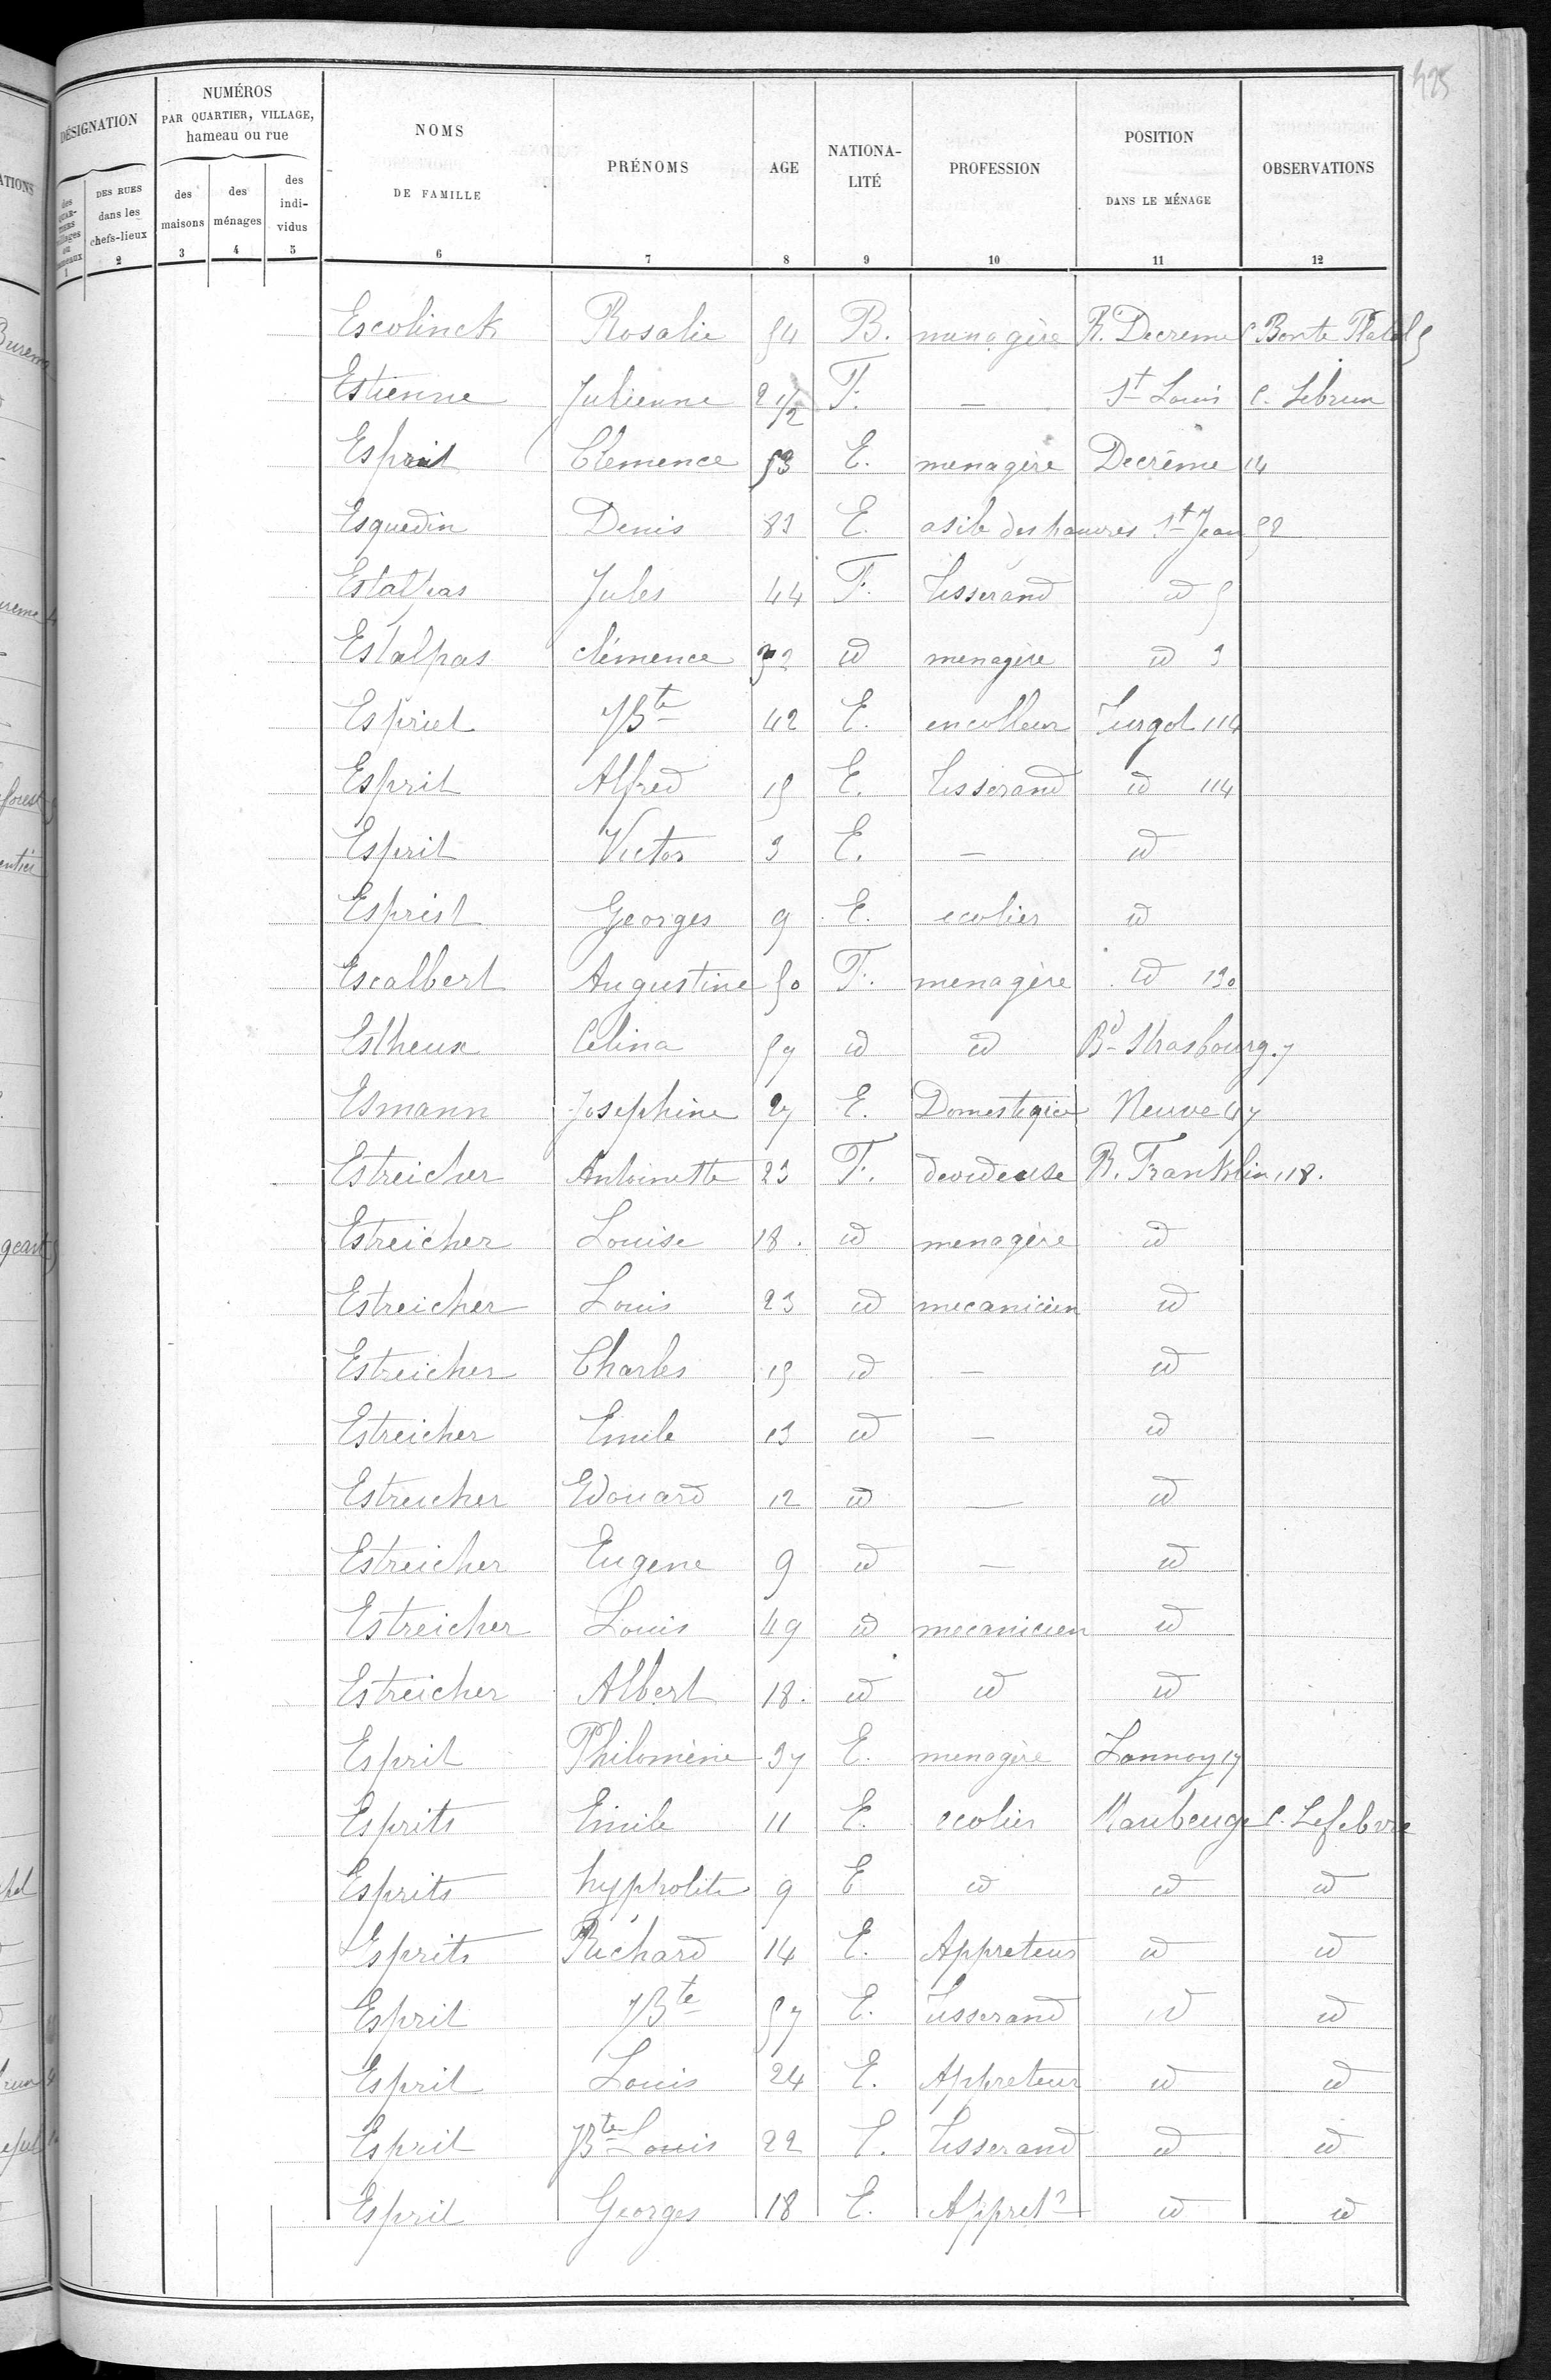 425
DÉSIGNATION
NUMÉROS
PAR QUARTIER, VILLAGE,
hameau ou rue
NOMS
DE FAMILLE
PRÉNOMS
AGE
NATIONA-
LITÉ
PROFESSION
POSITION
DANS LE MÉNAGE
OBSERVATIONS
DES RUES
dans les
chefs-lieux
des
maisons
des
ménages
des
indi-
vidus
1 2 3 4 5 6 7 8 9 10 11 12
Escolinck Rosalie 54 B. menagère R. Decreme C. Bonte Platel 5
Estienne Julienne 2 1/2 F. — St Louis C. Lebrun
Esprit Clemence 53 E. menagère Decrême 14
Esquedin Denis 83 E. asile des pauvres St Jean 52
Estalpas Jules 44 F. Tisserand id 5
Estalpas clémence 32 id menagère id 3
Espriet JBte 42 E. encolleur Turgot 114
Esprit Alfred 15 E. Tisserand id 114
Esprit Victor 3 E. — id
Esprist Georges 9 E. ecolier id
Escalbert Augustine 50 F. menagère id 130
Estheux Celina 57 id id Bd Strasbourg. 7
Esmann Josephine 27 E. Domestique Neuve 47
Estreicher Antoinette 23 F. devideuse R. Franklin 118.
Estreicher Louise 18. id menagère id
Estreicher Louis 23 id mecanicien id
Estreicher Charles 15 id — id
Estreicher Emile 13 id — id
Estreicher Edouard 12 id — id
Estreicher Eugene 9 id — id
Estreicher Louis 49 id mecanicien id
Estreicher Albert 18. id id id
Esprit Philomène 37 E. menagère Lannoy 17
Esprits Emile 11 E. ecolier Maubeuge C. Lefebvre
Esprits hyppolite 9 E id id id
Esprits Richard 14 E. Appreteur id id
Esprit JBte 57 E. Tisserand id id
Esprit Louis 24 E. Appreteur id id
Esprit JBte Louis 22 E. Tisserand id id
Esprit Georges 18 E. Appretr id id